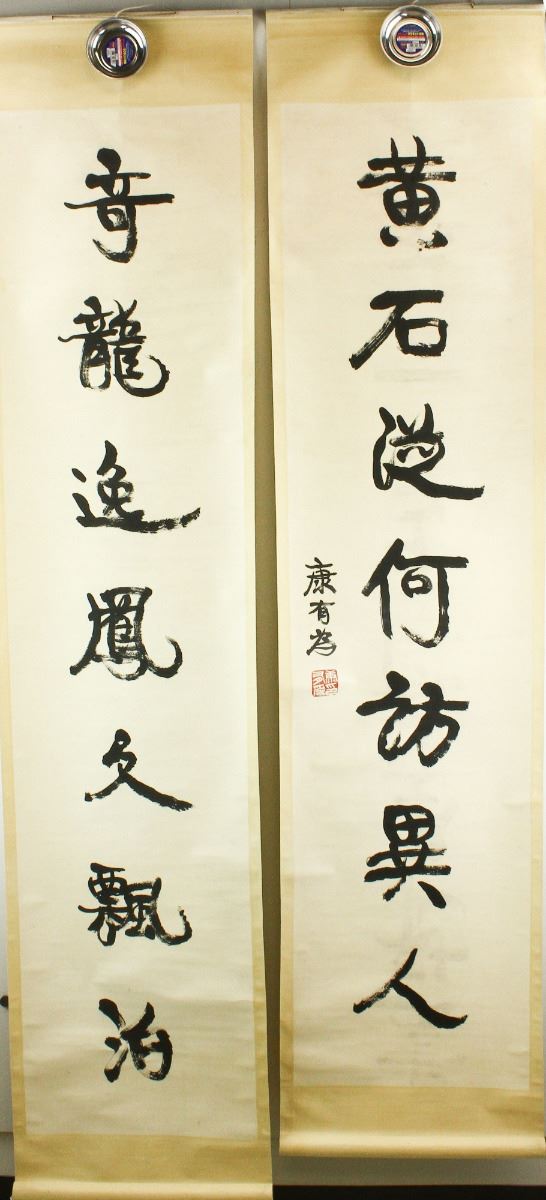 黄石從何訪異人
康有為
奇龍逸鳳久飄泊